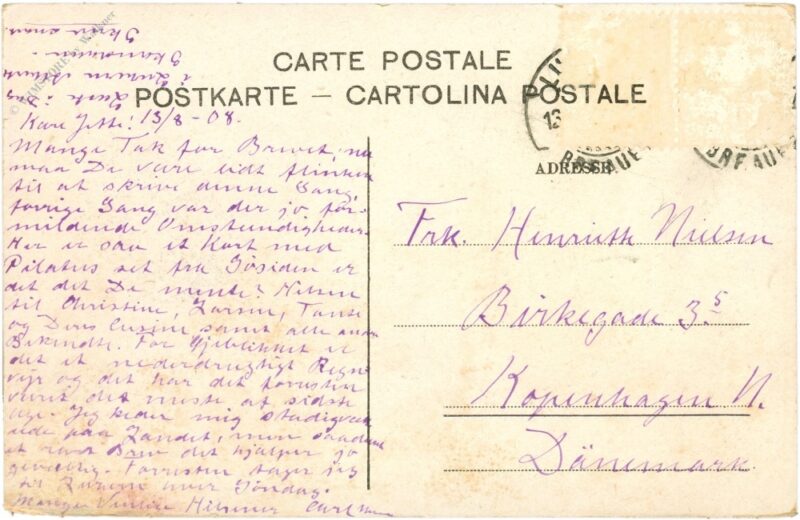 CARTE POSTALE
POSTKARTE — CARTOLINA POSTALE
ADRESSE
Kære Jette! 13/8-08.
Mange Tak for Brevet, nu
maa De være lidt flinkere
til at skrive denne Gang,
forrige Gang var der jo for-
mildende Omstændigheder.
Her er saa et Kort med
Pilatus set fra Søsiden er
det det De mente? Hilsen
til Christine, Tante
og Deres Cusine samt alle andre
Bekendte. For Øjeblikket er
det et nederdrægtigt Regn-
vejr og det har det forresten
været det meste af sidste
Uge. Jeg keder mig stadigvæk
paa Landet, men saadant
et rart Brev det hjælper jo
gevaltig. Forresten tager jeg
til Luzern over Søndag.
Mange Hilsner Carl
Frk. Henriette Nielsen
Birkegade 3⁵
Kopenhagen N.
Dänemark